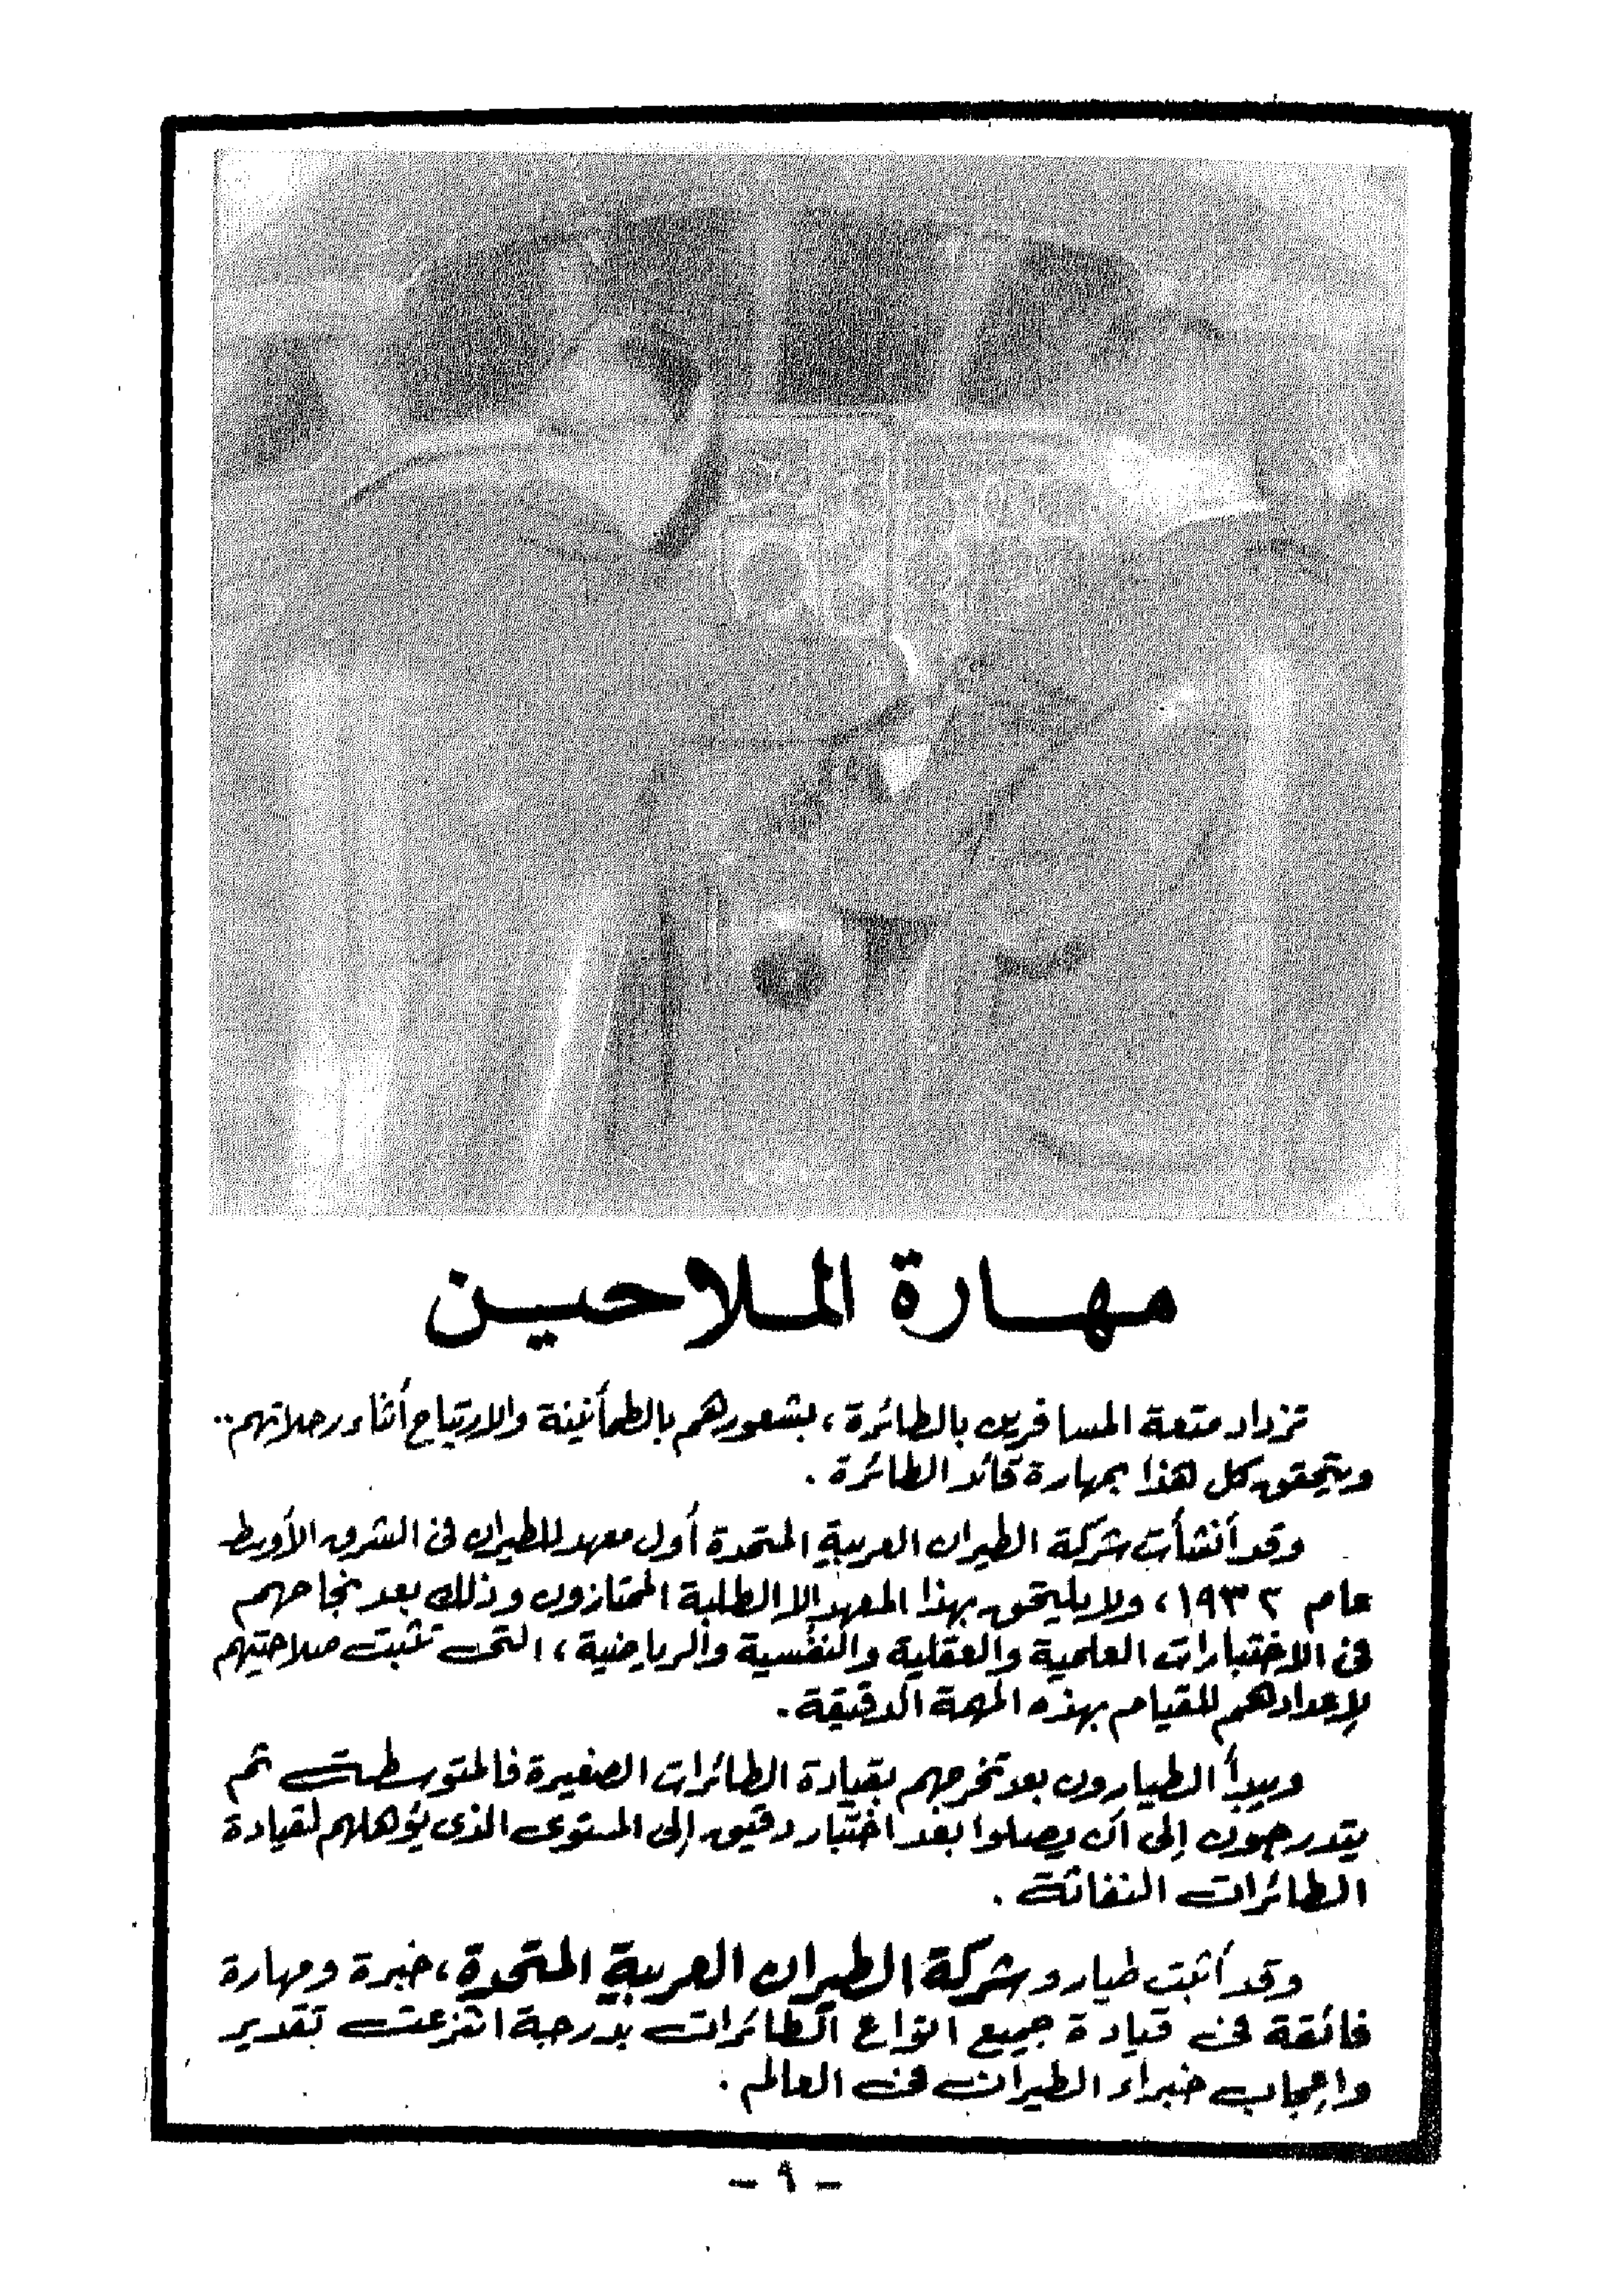 مهارة الملاحين
تزداد متعة المسافرين بالطائرة ، بشعورهم بالطمأنينة والارتياح أثناء رحلاتهم ..
ويتحقق كل هذا بمهارة قائد الطائرة .
وقد أنشأت شركة الطيران العربية المتحدة أول معهد للطيران فى الشرق الأوسط
عام ١٩٣٢ ، ولا يلتحق بهذا المعهد إلا الطلبة الممتازون وذلك بعد نجاحهم
فى الاختبارات العلمية والعقلية والنفسية والرياضية ، التى تثبت صلاحيتهم
لإعدادهم للقيام بهذه المهمة الدقيقة .
ويبدأ الطيارون بعد تخرجهم بقيادة الطائرات الصغيرة فالمتوسطة ثم
يتدرجون إلى أن يصلوا بعد اختبار دقيق إلى المستوى الذى يؤهلهم لقيادة
الطائرات النفاثة .
وقد أثبت طيارو شركة الطيران العربية المتحدة ، خبرة ومهارة
فائقة فى قيادة جميع انواع الطائرات بدرجة انتزعت تقدير
وإعجاب خبراء الطيران فى العالم .
- ٩ -